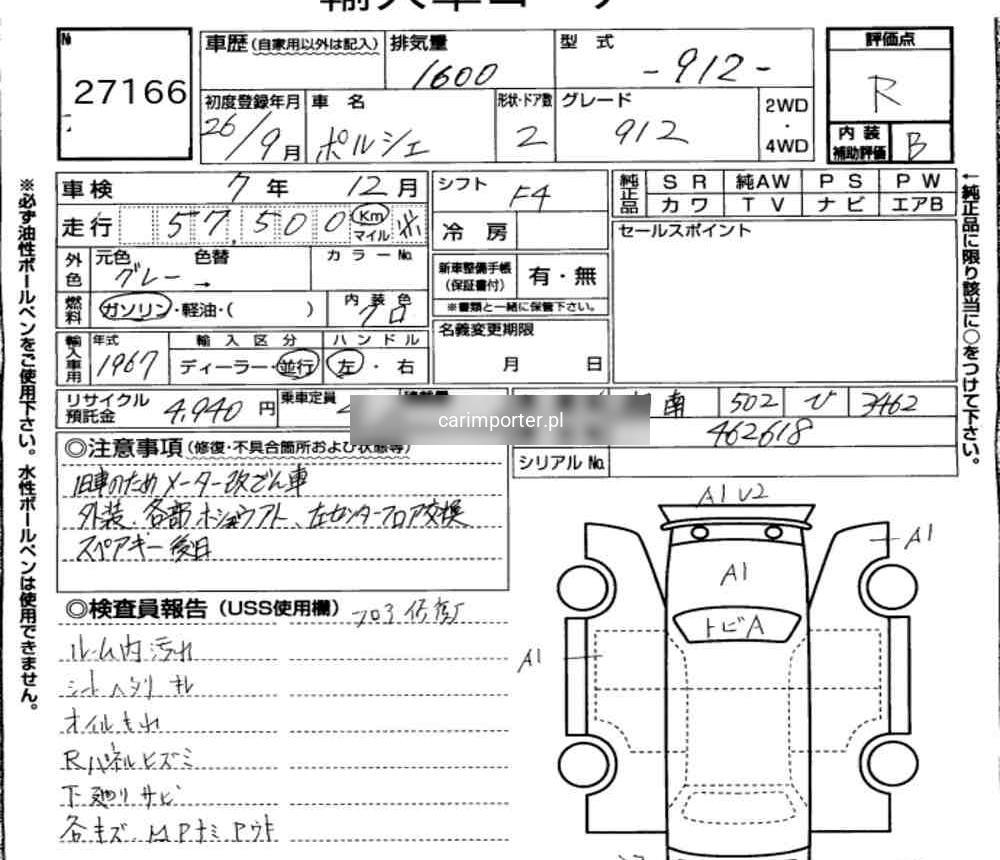 №
27166
車歴(自家用以外は記入)
排気量
1600
型 式
-912-
評価点
R
初度登録年月
26/9月
車 名
ポルシェ
形状・ドア数
2
グレード
912
2WD
・
4WD
内装
補助評価
B
車検 7年 12月
走行 57,500 Km マイル
外色
元色
グレー→
色替
カラーNo.
燃料
ガソリン・軽油・( )
内装色
クロ
輸入車用
年式
1967
輸入区分
ディーラー・並行
ハンドル
左・右
リサイクル
預託金
4,940円
乗車定員
シフト
F4
冷房
新車整備手帳
(保証書付)
有・無
※書類と一緒に保管下さい。
名義変更期限
月 日
純正品
SR 純AW PS PW
カワ TV ナビ エアB
セールスポイント
502 び 3462
462618
シリアルNo.
carimporter.pl
◎注意事項(修復・不具合箇所および状態等)
旧車のためメーター改ざん車
外装、各部ホショウフメイ、左センターフロア交換
スペアキー後日
◎検査員報告(USS使用欄)
フロア修復
ルーム内汚れ
シートヘタリ キレ
オイルもれ
Rパネルヒズミ
下廻りサビ
A1 V2
A1
A1
トビA
A1
※必ず油性ボールペンをご使用下さい。水性ボールペンは使用できません。
←純正品に限り該当に○をつけて下さい。